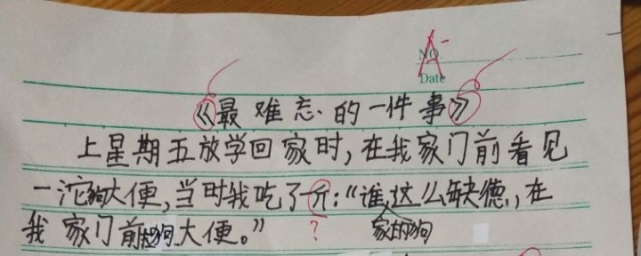 A-
NO
Date
《最难忘的一件事》
上星期五放学回家时,在我家门前看见
一沱狗大便,当时我吃了一斤:“谁这么缺德,在
我家门前拉狗大便。”
?
家的狗